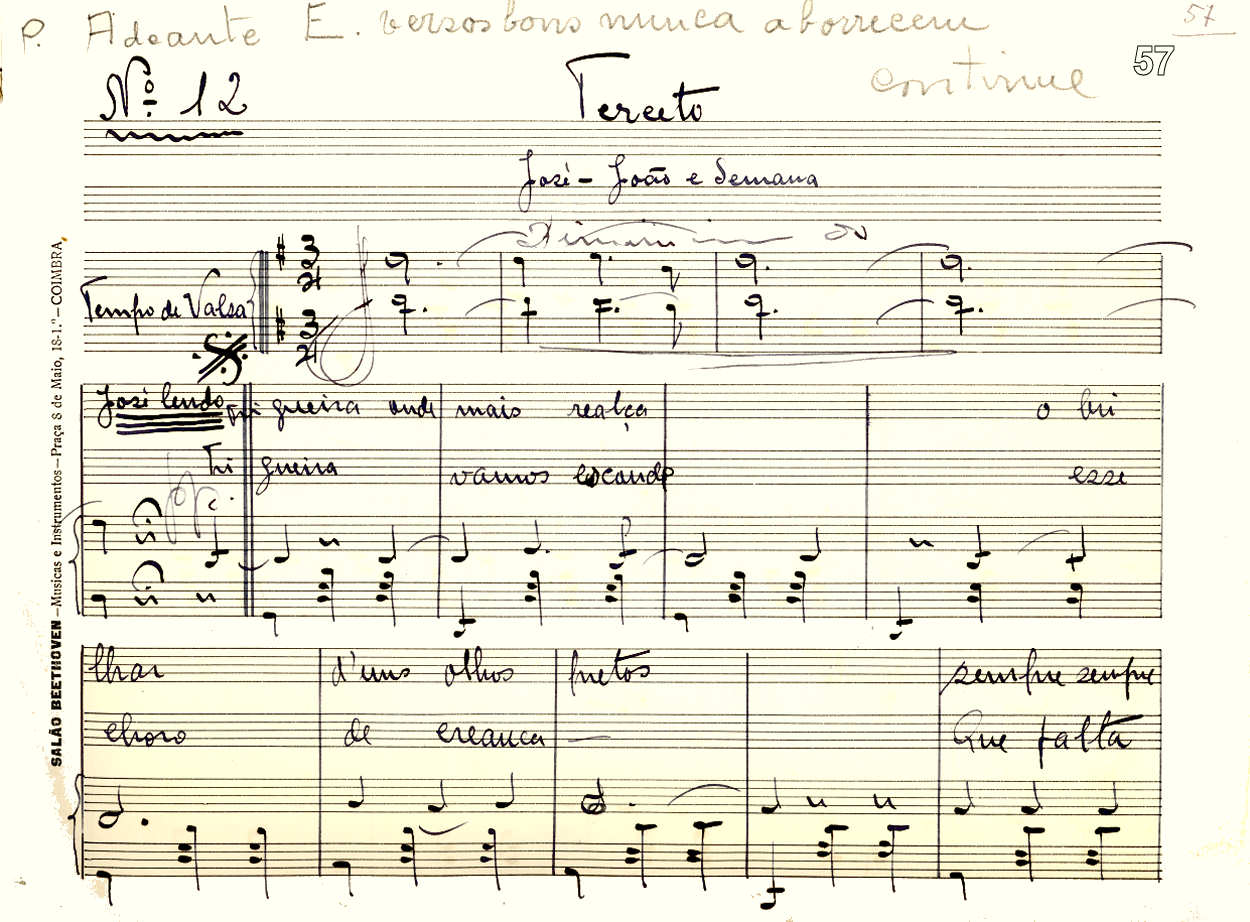 P. Adeante E. versos bons nunca aborrecem
57
continue
57
Nº 12
Terceto
José - João e Semana
Tempo de Valsa
3
4
3
4
José lendo Tri gueira onde mais realça o bri
Tri gueira vamos esconde esse
lhar d'uns olhos pretos sempre sempre
choro de creanca — Que falta
SALÃO BEETHOVEN — Musicas e Instrumentos — Praça 8 de Maio, 18-1.º — COIMBRA